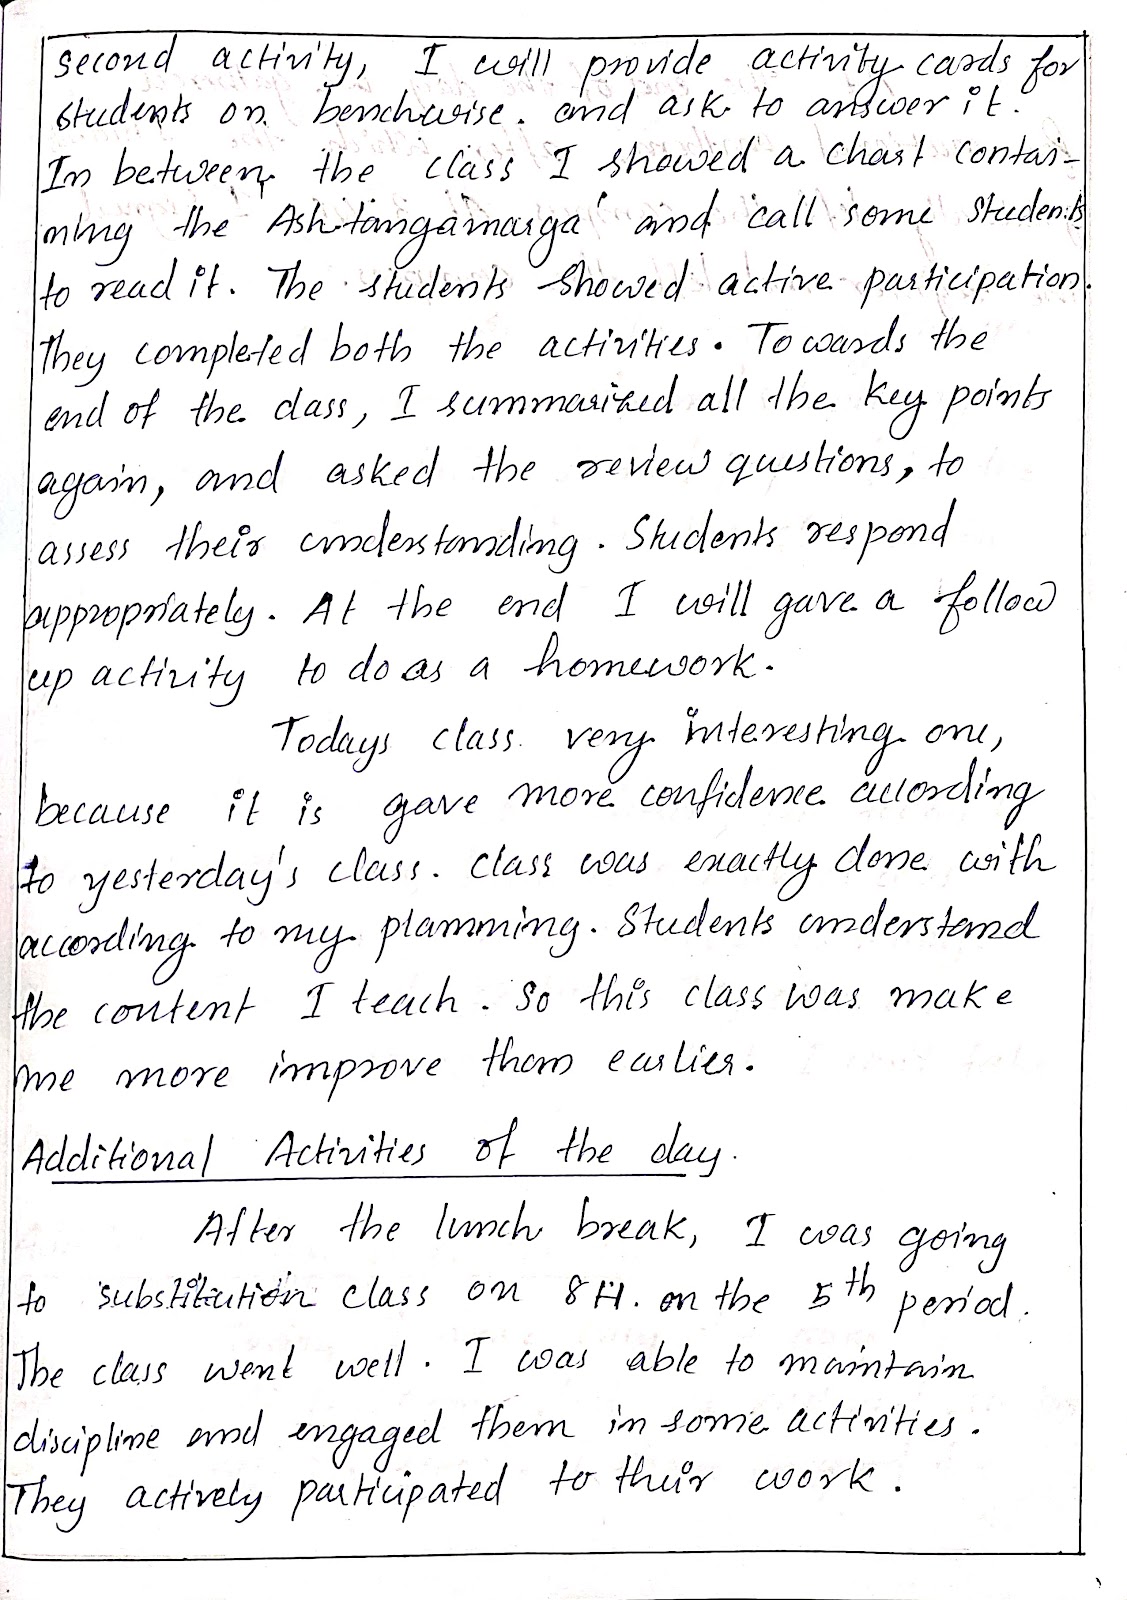 second activity, I will provide activity cards for
students on benchwise. and ask to answer it.
In between the class I showed a chart contai-
ning the Ashtangamarga' and call some students
to read it. The students showed active participation.
They completed both the activities. Towards the
end of the class, I summarized all the key points
again, and asked the review questions, to
assess their understanding. Students respond
appropriately. At the end I will gave a follow
up activity to do as a homework.
Todays class very interesting one,
because it is gave more confidence according
to yesterday's class. Class was exactly done with
according to my planning. Students understand
the content I teach. So this class was make
me more improve than earlier.
Additional Activities of the day.
After the lunch break, I was going
to substitution class on 8H. on the 5th period.
The class went well. I was able to maintain
discipline and engaged them in some activities.
They actively participated to their work.